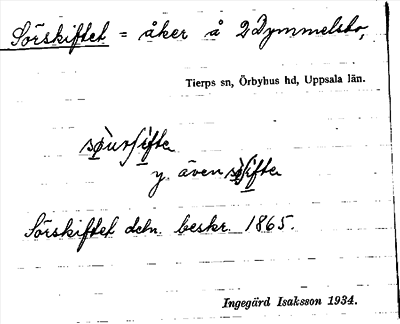 Sörskiftet = åker å 2 Dymmelsbo,
Tierps sn, Örbyhus hd, Uppsala län.
y. även
Sörskiftet detn. beskr. 1865.
Ingegärd Isaksson 1934.